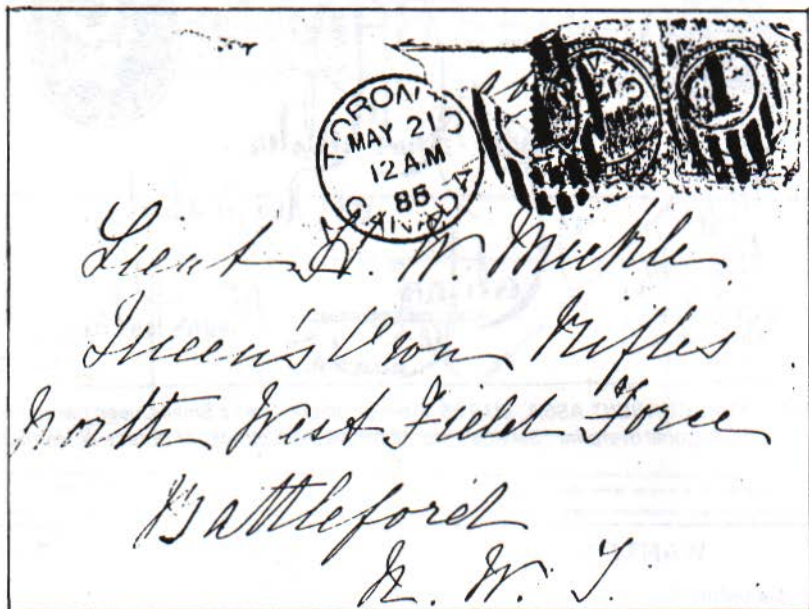 TORONTO
MAY 21
12 A.M
85
CANADA
Lieut H. W. Mickle
Queen's Own Rifles
North West Field Force
Battleford
N. W. T.